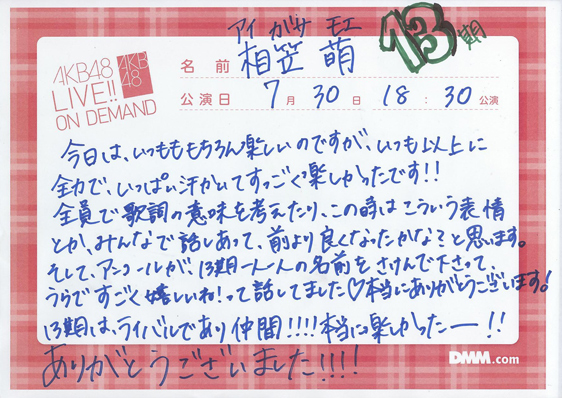 アイ がサ モエ
AKB48
LIVE!!
ON DEMAND
AKB
48
名前 相笠 萌 13期
公演日 7月30日 18:30公演
今日は、いつももちろん楽しいのですが、いつも以上に
全力で、いっぱい汗かいてすっごく楽しかったです!!
全員で歌詞の意味を考えたり、この時はこういう表情
とか、みんなで話しあって、前より良くなったかな?と思います。
そして、アンコールが、13期一人一人の名前をさけんで下さって、
うらですごく嬉しいね!って話してました♡本当にありがとうございます!
13期は、ライバルであり仲間!!!!本当に楽しかったー!!
ありがとうございました!!!!
DMM.com